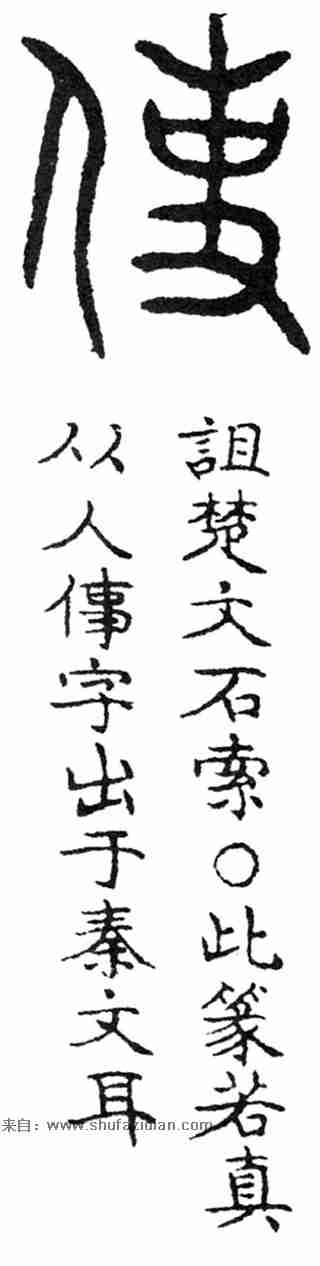 使
詛楚文石索○此篆若真
从人傳字出于秦文耳
来自：www.shufazidian.com